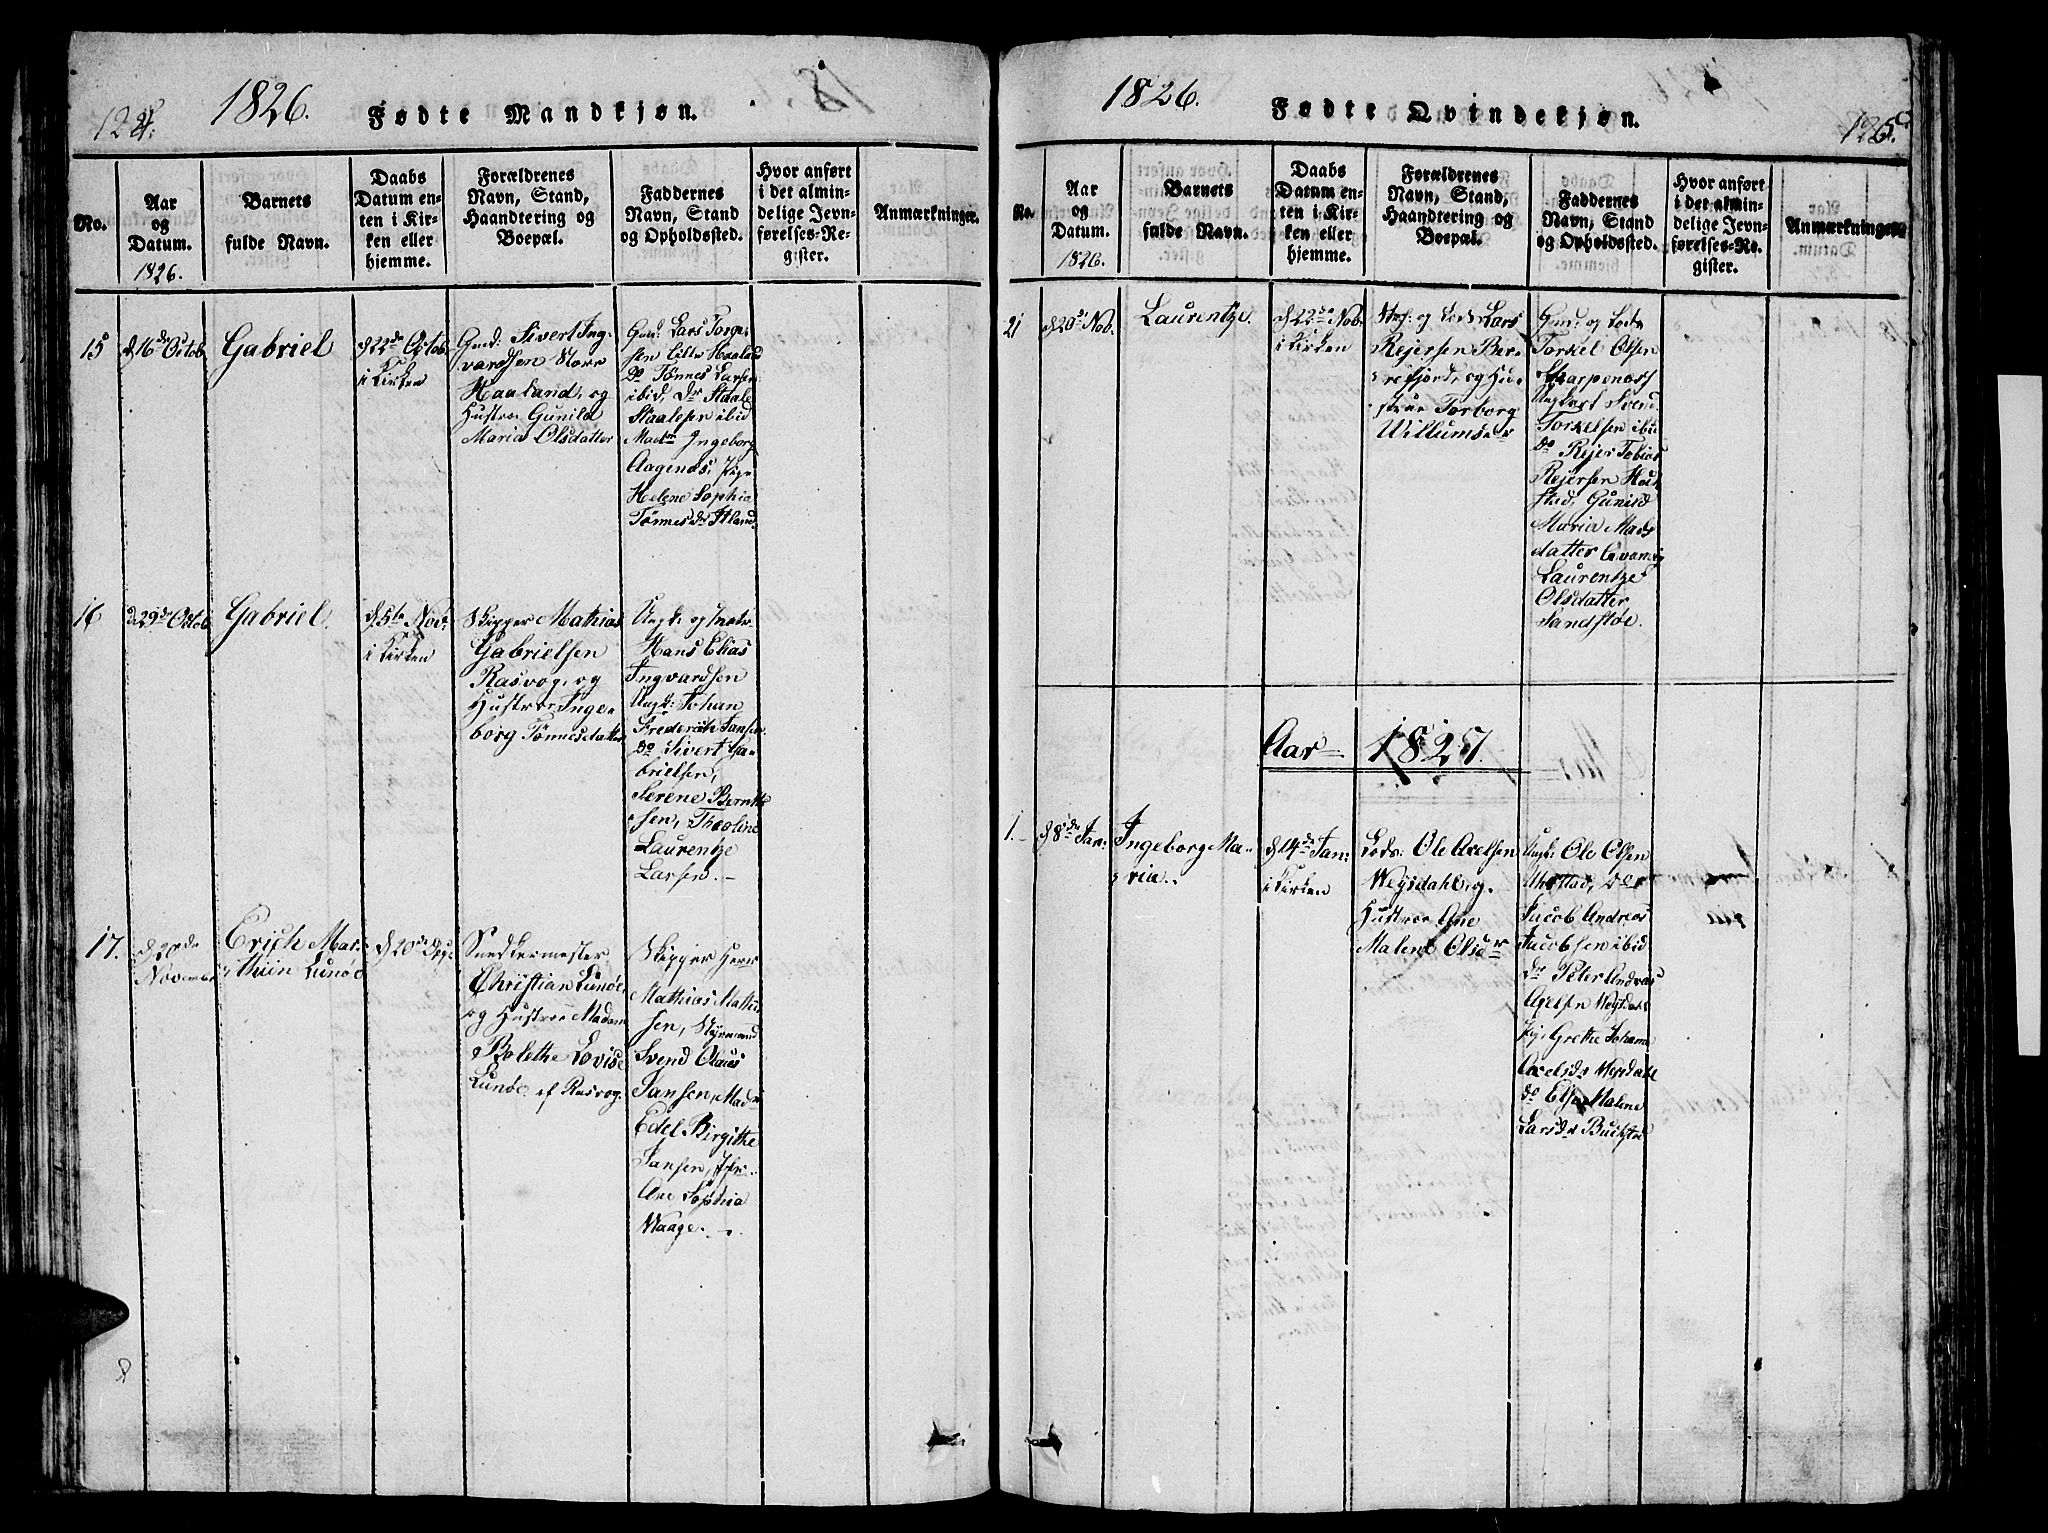 124.
1826.
Fødte Mandkjøn.
No.
Aar
og
Datum.
1826.
Barnets
fulde Navn.
Daabs
Datum en-
ten i Kir-
ken eller
hjemme.
Forældrenes
Navn, Stand,
Haandtering og
Boepæl.
Faddernes
Navn, Stand
og Opholdssted.
Hvor anført
i det almin-
delige Jevn-
førelses-Re-
gister.
Anmærkninger.
15
d 16de Octob
Gabriel
d 22de Octob
i Kirken
Gmd. Sivert Ing-
vardsen Store
Haaland, og
Hustroe Gunild
Maria Olsdatter
Gmd: Lars Torge-
sen Lille Haaland
Do Tönnes Larsen
ibid, Do Staale
Staalesen ibid
Ingeborg
Aagends, Pige
Helene Sophia
Tönnesdr
16
d 29de Octob
Gabriel.
d 5te Nov:
i Kirken
Skipper Mathias
Gabrielsen
Rasvog, og
Hustroe Inge-
borg Tönnesdatter
Ungk: og
Hans Elias
Ingvardsen
Ungk: Johan
Frederich Jansen
do Sivert Ga-
brielsen,
Serene Bernte
sen, Theoline
Laurentze
Larsen. –
17.
d 20de
November
Erich Mar-
thin Lunöe
d 20de
Snedkermester
Christian Lunöe,
og Hustroe Madam
Bolethe Lovise
Lunöe af Rasvog.
Skipper Herr
Mathias Mathi-
sen, Styrmand
Svend Olaus
Jansen, Mad:
Edel Birgithe
Jansen, Jfr:
Ane Sophia
Waage. –
1826.
Fødte Qvindekjøn.
125.
No.
Aar
og
Datum.
1826.
Barnets
fulde Navn.
Daabs
Datum en-
ten i Kir-
ken eller
hjemme.
Forældrenes
Navn, Stand,
Haandtering og
Boepæl.
Faddernes
Navn, Stand
og Opholdssted.
Hvor anført
i det almin-
delige Jevn-
førelses-Re-
gister.
Anmærkninger.
21
d 20de Nob.
Laurentze.
d 22de Nob.
i Kirken
og Lods Lars
Rejersen Ber-
refjord, og Hu-
stroe Torborg
Willumsdr
Gm: og Lods
Torkel Olsen
Skarpenæss
Ungkarl Svend
Torkelsen ibid
do Rejer Tobias
Rejersen
Gunild
Maria Mads
datter
Laurentze
Olsdatter
Sandstöe.
Aar 1827.
1.
d 8de Jan:
Ingeborg Ma-
ria.
d 14de Jan:
i Kirken
Lods: Ole Axelsen
Wejsdahl, og
Hustroe Ane
Malene Olsdr
Ungk: Ole Olsen
do
Jacob Andreas
Jacobsen ibid
do Peter Andreas
Axelsen
Pig: Grethe Johanne
Axelsdr Wejsdahl
do Else Malene
Larsdr